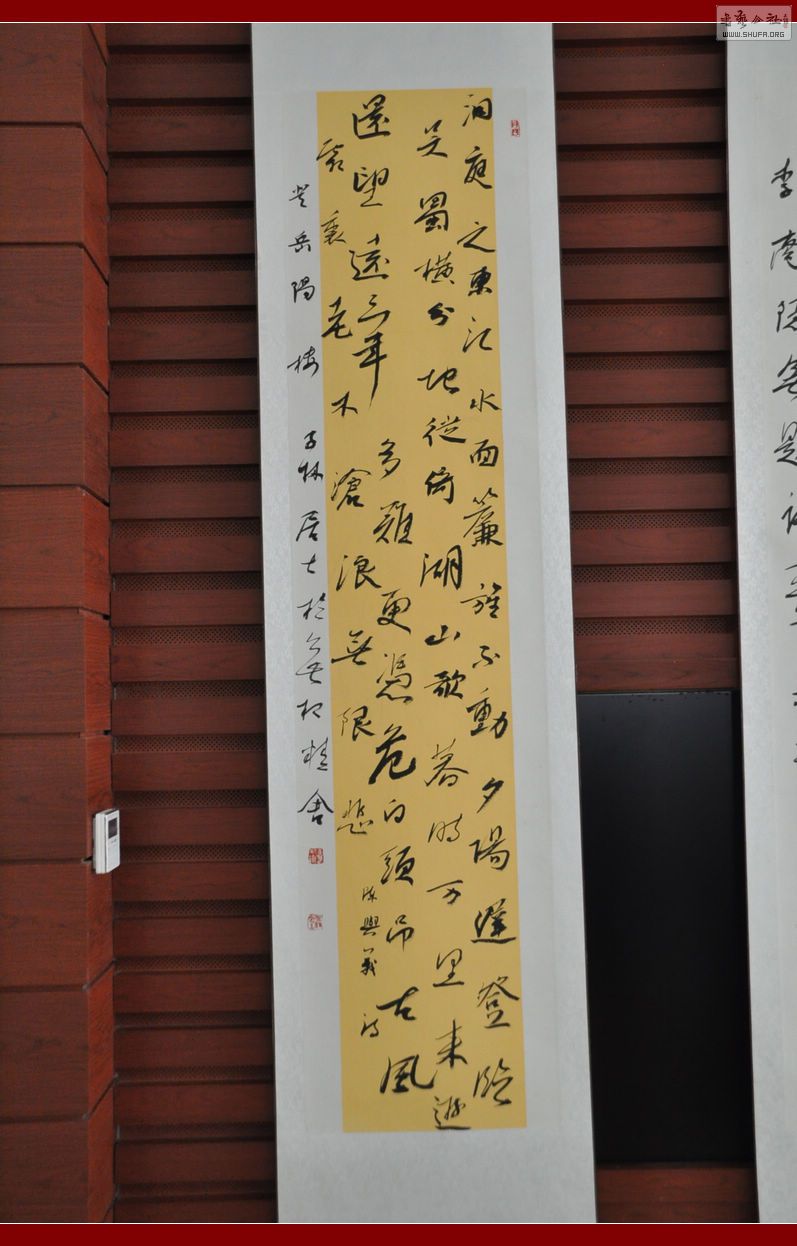 洞庭之東江水西簾旌不動夕陽遲登臨
吴蜀橫分地徙倚湖山欲暮時万里来遊
還望遠三年多難更憑危白頭吊古風
霜裏老木滄浪無限悲 陳與義詩
登岳陽樓 子林居士於相精舍
李商隐無題詩
書藝公社
WWW.SHUFA.ORG